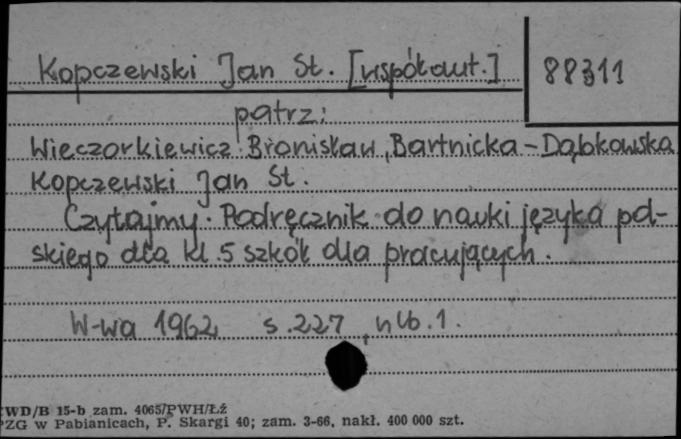 Kopczewski Jan St. [współaut.]
88311
patrz:
Wieczorkiewicz Bronisław, Bartnicka-Dąbkowska
Kopczewski Jan St.
Czytajmy. Podręcznik do nauki języka pol-
skiego dla kl. 5 szkół dla pracujących.
W-wa 1962 s. 227, nlb. 1.
WD/B 15-b zam. 4065/PWH/Łź
PZG w Pabianicach, P. Skargi 40; zam. 3-66, nakł. 400 000 szt.